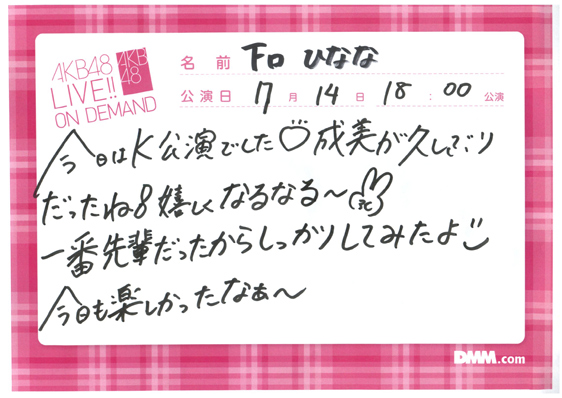 AKB48
LIVE!!
ON DEMAND
AKB
48
名前 下口ひなな
公演日 7月14日 18:00公演
今日はK公演でした♡成美が久しぶり
だったね8嬉しくなるなる〜
一番先輩だったからしっかりしてみたよ
今日も楽しかったなぁ〜
DMM.com